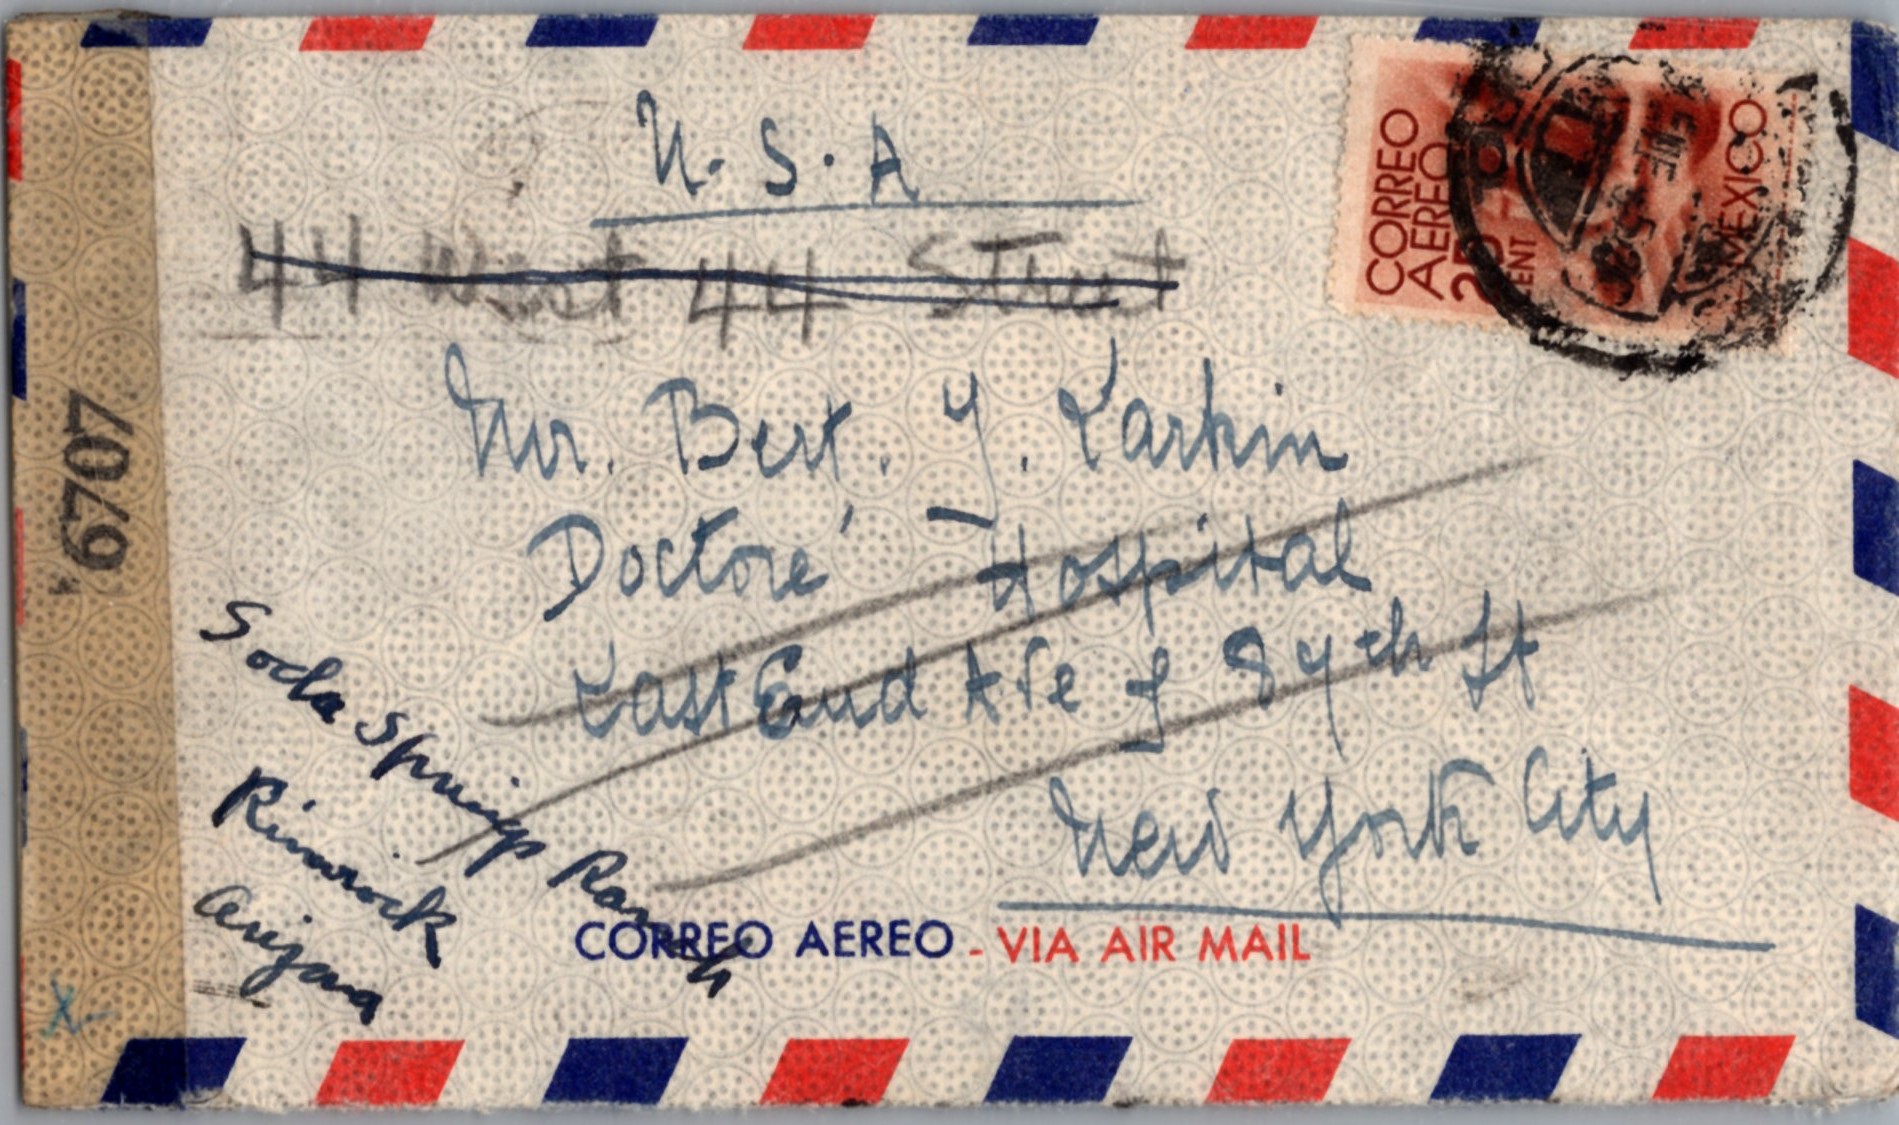 U. S. A
44 West 44 Street
Mr. Bert. Y. Larkin
Doctors' Hospital
East End Ave & 87th St
New York City
Soda Springs Ranch
Rimrock
Arizona
CORREO AEREO - VIA AIR MAIL
6707
CORREO
AEREO
MEXICO
X